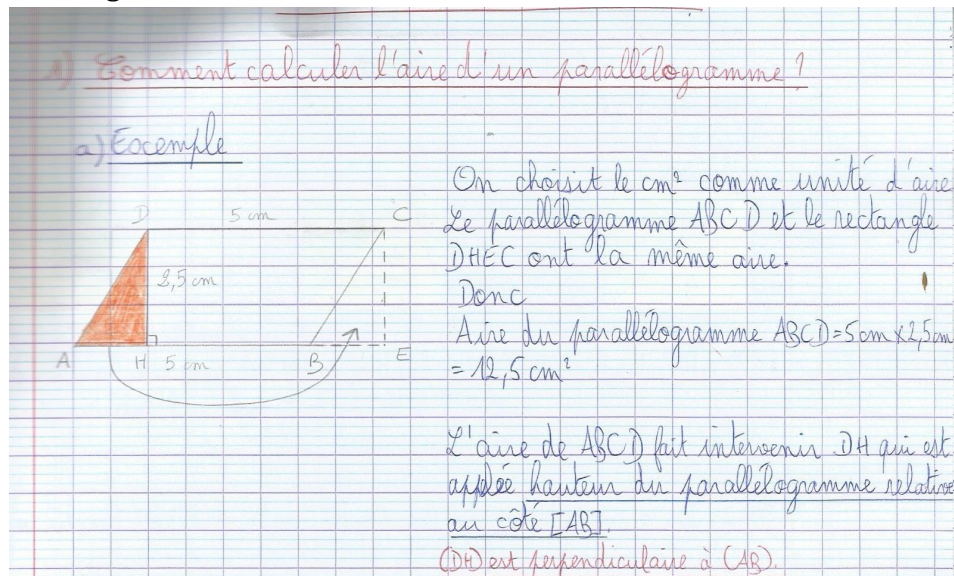 1) Comment calculer l'aire d'un parallélogramme?
a) Exemple
D 5 cm C
2,5 cm
A H 5 cm B E
On choisit le cm² comme unité d'aire
Le parallélogramme ABCD et le rectangle
DHEC ont la même aire.
Donc
Aire du parallélogramme ABCD=5cm×2,5cm
= 12,5 cm²
L'aire de ABCD fait intervenir DH qui est
applée hauteur du parallélogramme relative
au côté [AB].
(DH) est perpendiculaire à (AB).